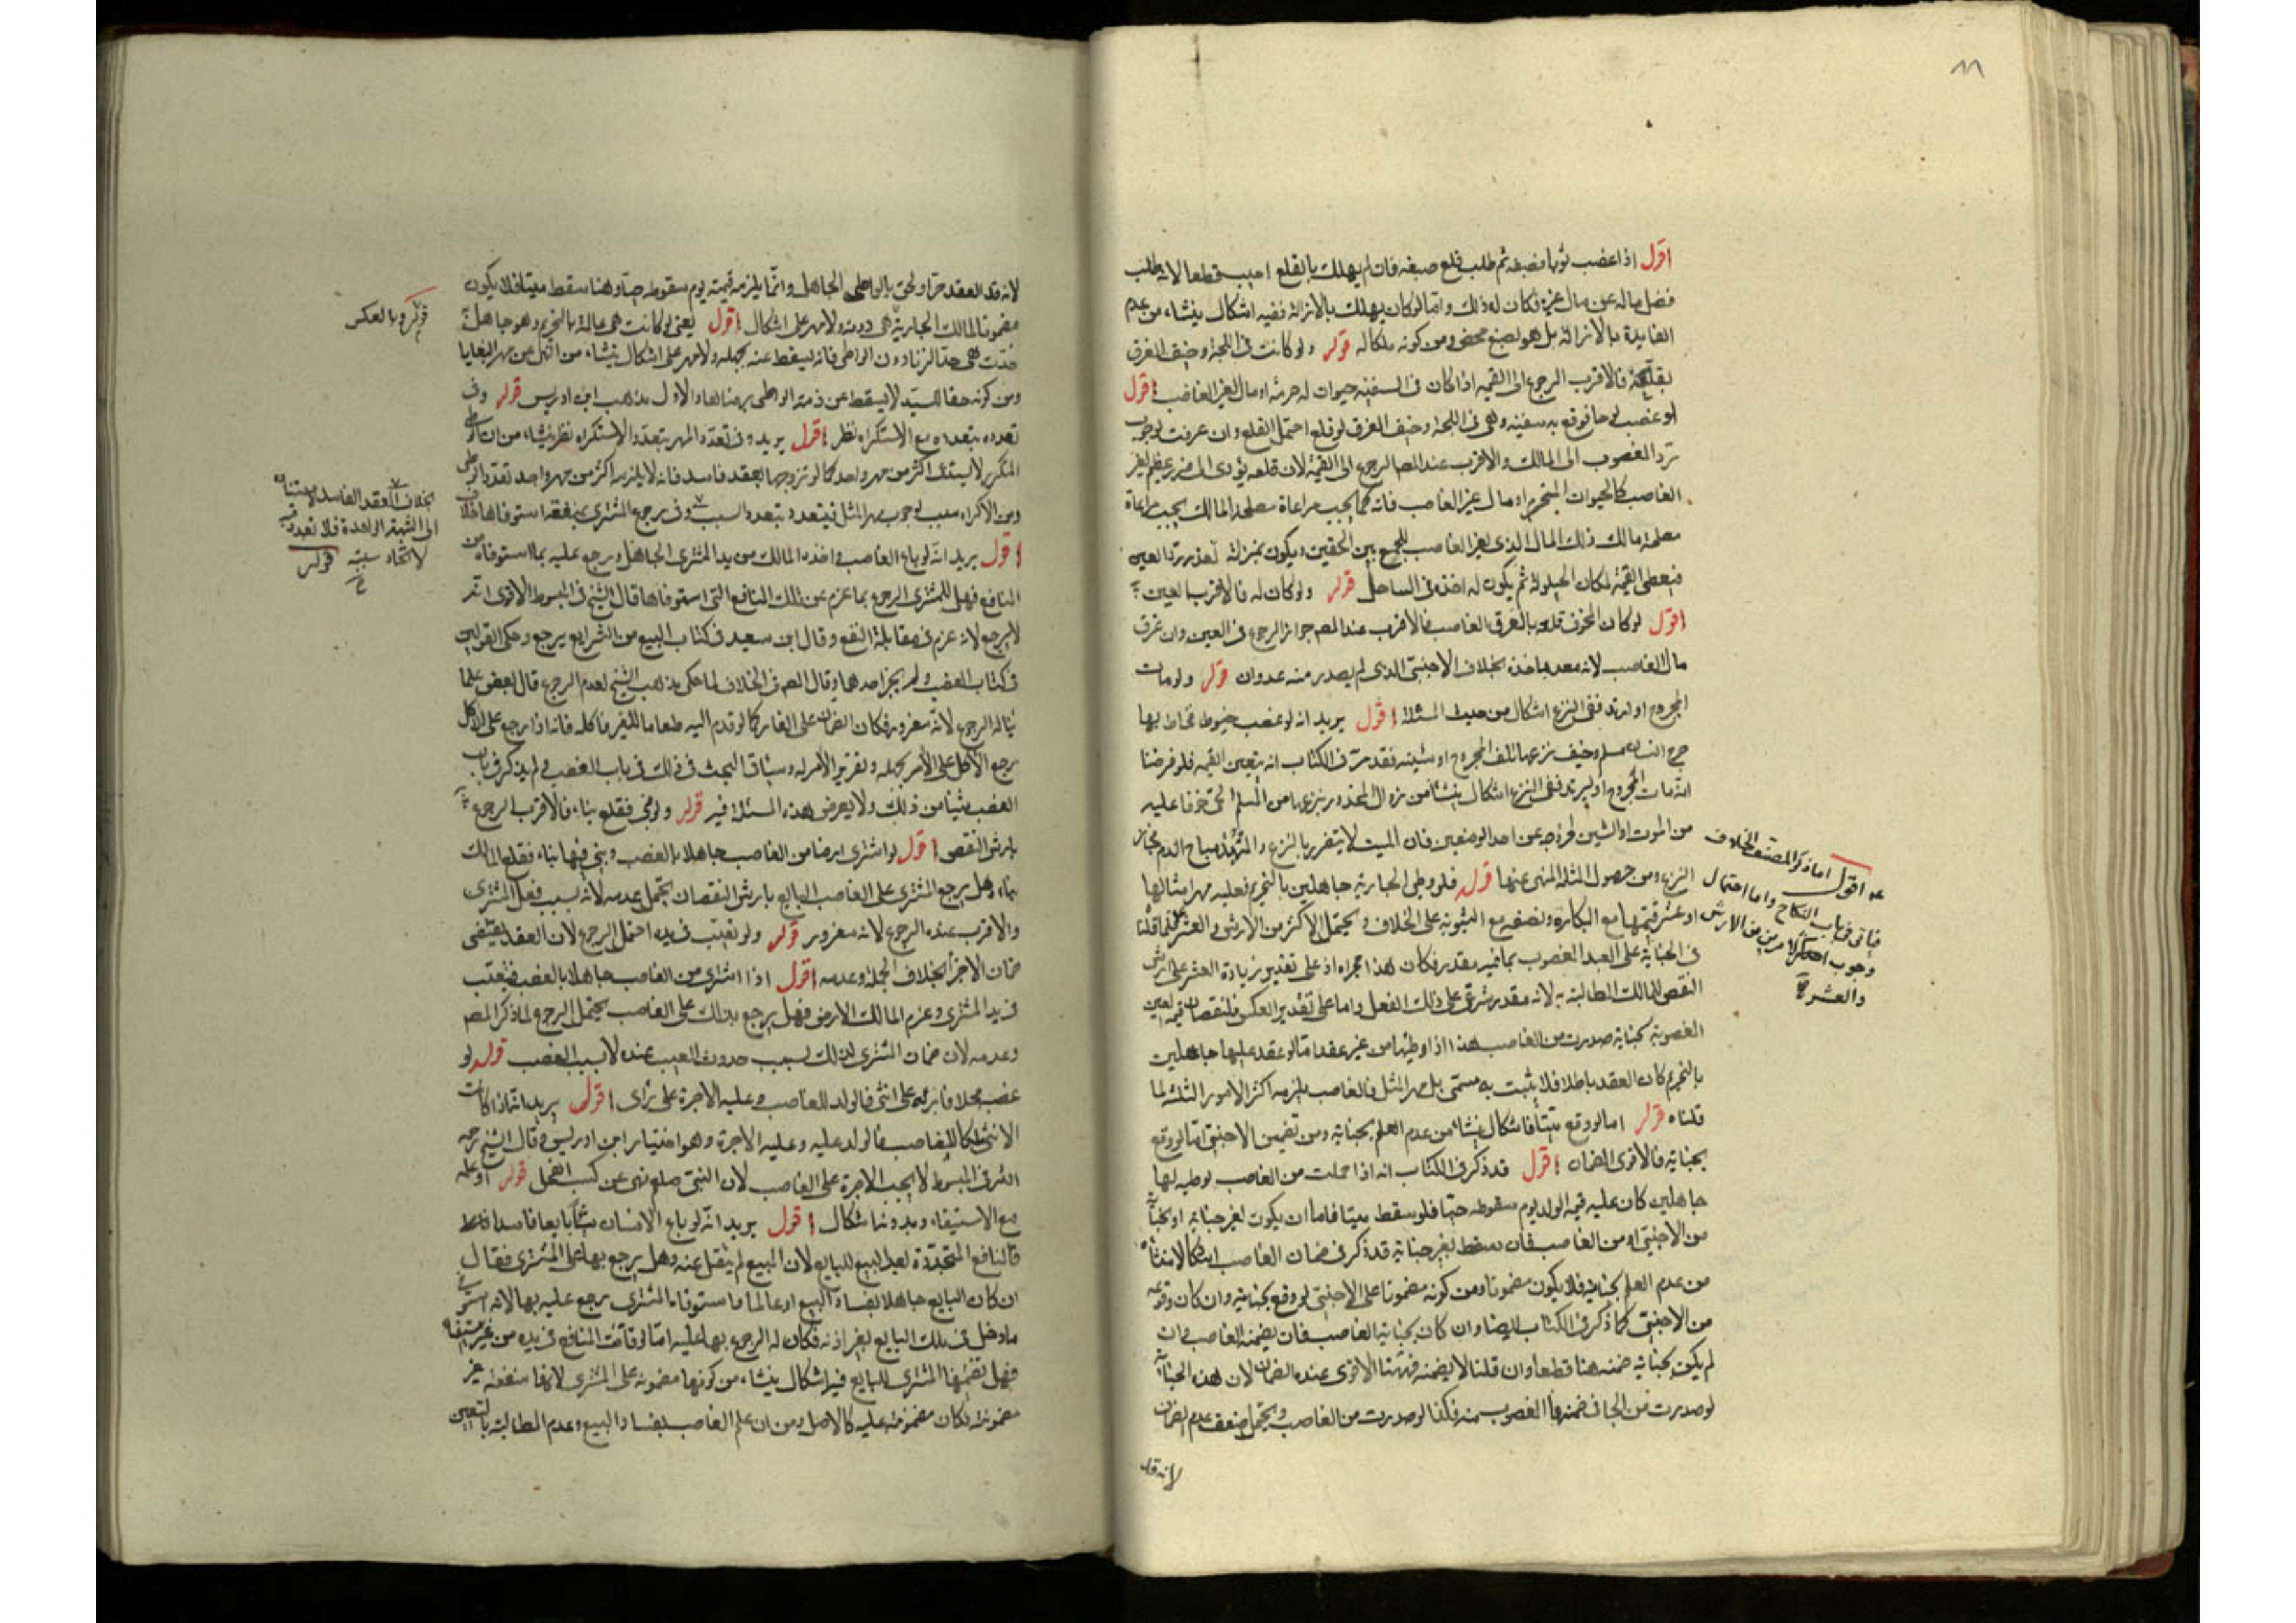 ١١
اقول اذا غصب ثوبا فصبغه ثم طلب قلع صبغه فان لم يهلك بالقلع اجيب قطعا لانه يطلب
فصل ماله عن مال غيره فكان له ذلك واما لو كان يهلك بالازالة ففيه اشكال ينشاء من عدم
الفايدة بالازالة بل هو تضييع محض ومن كونه ملكا له قوله ولو كانت في اللجة وخيف الغرق
بقلعه فالاقرب الرجوع الى القيمة اذا كان في السفينة حيوان له حرمة او مال لغير الغاصب اقول
لو غصب لوحا فرقع به سفينة وهي في اللجة وخيف الغرق لو قلع احتمل القلع وان غرقت لوجوب
رد المغصوب الى المالك والاقرب عند المصـ الرجوع الى القيمة لان قلعه يؤدي الى ضرر عظيم لغير
الغاصب كالحيوان المحترم او مال غير الغاصب فانه كما يجب مراعاة مصلحة المالك يجب مراعاة
مصلحة مالك ذلك المال الذي لغير الغاصب للجمع بين الحقين ويكون بمنزلة تعذر رد العين
فيعطى القيمة لمكان الحيلولة ثم يكون له اخذه في الساحل قوله ولو كان له فالاقرب العين
اقول لو كان المخوف قلعه بالغرق الغاصب فالاقرب عند المصـ جواز الرجوع في العين وان غرق
مال الغاصب لانه معد باخذه بخلاف الاجنبي الذي لم يصدر منه عدوان قوله ولو مات
المجروح او ارتد ففي النزع اشكال من حيث المثلة اقول يريد انه لو غصب خيوطا فخاط بها
جرح انسان مسلم وخيف نزعها تلف المجروح او شينه فقد مر في الكتاب انه يتعين القيمة فلو فرضنا
انه مات المجروح او ارتد ففي النزع اشكال ينشأ من زوال المحذور بنزعها من المسلم الحي خوفا عليه
من الموت او الشين لخروجه عن احد الوصفين فان الميت لا يتضرر بالنزع والمرتد مباح الدم فجاز
النزع ومن حصول المثلة المنهي عنها قوله فلو وطئ الجارية جاهلين بالتحريم فعليه مهر امثالها
او عشر قيمتها مع البكارة ونصفه مع الثيوبة على الخلاف ويحتمل الاكثر من الارش والعشر على ما قلنا
في الجناية على العبد المغصوب بما فيه مقدر فكان هذا مجراه اذ على تقدير زيادة العشر على ارش
النقص للمالك المطالبة به لانه مقدر شرعي على ذلك الفعل واما على تقدير العكس فلنقصان قيمة العين
المغصوبة بجناية صدرت من الغاصب هذا اذا وطئها من غير عقد اما لو عقد عليها جاهلين
بالتحريم كان العقد باطلا فلا يثبت به مسمى بل مهر المثل فالغاصب يلزمه اكثر الامور الثلثة لما
قلناه قوله اما لو وقع ميتا فاشكال ينشاء من عدم العلم بحياته ومن تضمين الاجنبي اما لو وقع
بجناية فالاقوى الضمان اقول قد ذكر في الكتاب انه اذا حملت من الغاصب بوطيه لها
جاهلين كان عليه قيمة الولد يوم سقوطه حيا فلو سقط ميتا فاما ان يكون لغير جناية او بجناية
من الاجنبي او من الغاصب فان سقط لغير جناية قد ذكر في ضمان الغاصب اشكالا منشاه
من عدم العلم بحياته فلا يكون مضمونا ومن كونه مضمونا على الاجنبي لو وقع بجنايته وان كان وقوعه
من الاجنبي كما ذكر في الكتاب ايضا وان كان بجناية الغاصب فان يضمنه الغاصب وان
لم يكن بجناية ضمنه هنا قطعا وان قلنا لا يضمنه فههنا الاقوى عنده الضمان لان هذه الجناية
لو صدرت من الجاني ضمنها المغصوب منه فكذا لو صدرت من الغاصب ويحتمل ضعف عدم الضمان
لانه قد
اقول اما ذكر المصنف الخلاف
فياتي في باب النكاح واما احتمال
وجوب اكثر الامرين من الارش
والعشر
لانه قد انعقد حرا ولحق بالواطي الجاهل وانما يلزمه قيمته يوم سقوطه حيا وهنا سقط ميتا فلا يكون
مضمونا لمالك الجارية هي دونه ولا مهر على اشكال اقول يعني لو كانت هي عالمة بالتحريم وهو جاهل
حدت هي حد الزنا دون الواطي فانه يسقط عنه بجهله ولا مهر على اشكال ينشاء من النهي عن مهر البغايا
ومن كونه حقا للسيد لا يسقط عن ذمة الواطي برضاها والاول مذهب ابن ادريس قوله وفي
تعدده بتعدده مع الاستكراه نظر اقول يريد وفي تعدد المهر بتعدد الاستكراه نظر ينشاء من ان الوطي
المتكرر لا يستدعي اكثر من مهر واحد كما لو تزوجها بعقد فاسد فانه لا يلزمه اكثر من مهر واحد تعدد الوطي
ومن الاكراه سبب لوجوب مهر المثل فيتعدد بتعدد السبب وفي رجوع المشتري بمنفعة استوفاها خلاف
اقول يريد انه لو باع الغاصب واخذه المالك من يد المشتري الجاهل ورجع عليه بما استوفاه من
المنافع فهل للمشتري الرجوع بما غرم عن تلك المنافع التي استوفاها قال الشيخ في المبسوط الاقوى انه
لا يرجع لانه غرم في مقابلة النفع وقال ابن سعيد في كتاب البيع من الشرايع يرجع وحكى القولين
في كتاب الغصب ولم يختر احدهما وقال المصـ في الخلاف لما حكى مذهب الشيخ لعدم الرجوع قال بعض علما
ئنا له الرجوع لانه مغرور فكان الضمان على الغار كما لو قدم اليه طعاما للغير فاكله فانه اذا رجع على الآكل
رجع الآكل على الآمر بجهله وتغرير الآمر له وسياتي البحث في ذلك في باب الغصب ولم يذكر في باب
الغصب شيئا من ذلك ولا يعرض لهذه المسئلة فيه قوله ولو بنى فقلع بناءه فالاقرب الرجوع
بارش النقص اقول لو اشترى ارضا من الغاصب جاهلا بالغصب وبنى فيها بناء فقلع المالك
بناءه هل يرجع المشتري على الغاصب البايع بارش النقصان يحتمل عدمه لانه بسبب فعل المشتري
والاقرب عنده الرجوع لانه مغرور قوله ولو تعيب في يده احتمل الرجوع لان العقد يقتضي
ضمان الاجزاء بخلاف الجملة وعدمه اقول اذا اشترى من الغاصب جاهلا بالغصب فتعيب
في يد المشتري وغرم المالك الارش فهل يرجع بذلك على الغاصب يحتمل الرجوع لما ذكر المصـ
وعدمه لان ضمان المشتري لذلك بسبب حدوث العيب عنده لا بسبب الغصب قوله لو
غصب فحلا فانزاه على انثى فالولد للغاصب وعليه الاجرة على رأي اقول يريد انه اذا كانت
الانثى ملكا للغاصب فالولد عليه وعليه الاجرة وهو اختيار ابن ادريس وقال الشيخ رحمه
الله في المبسوط لا يجب الاجرة على الغاصب لان النبي صلعم نهى عن كسب الفحل قوله او عليه
مع الاستيفاء وبدونها اشكال اقول يريد انه لو باع الانسان شيئا بيعا فاسدا
فالمنافع المتجددة بعد البيع للبايع لان المبيع لم ينتقل عنه وهل يرجع بها على المشتري فقال
ان كان البايع جاهلا بفساد البيع او عالما واستوفاه المشتري رجع عليه بها لانه استوفى
ما دخل في ملك البايع بغير اذنه فكان له الرجوع بها عليه اما لو فاتت المنافع في يده من غير استيفاء
فهل يضمنها المشتري للبايع فيه اشكال ينشاء من كونها مضمونة على المشتري لانها منفعة غير
مضمونة فكان مضمونة عليه كالاصل ومن ان علم الغاصب بفساد البيع وعدم المطالبة بالعين
قوله وبالعكس
بخلاف العقد الفاسد لاستناده
الى الشبهة الواحدة فلا تعدد فيه
لاتحاد سببه قوله